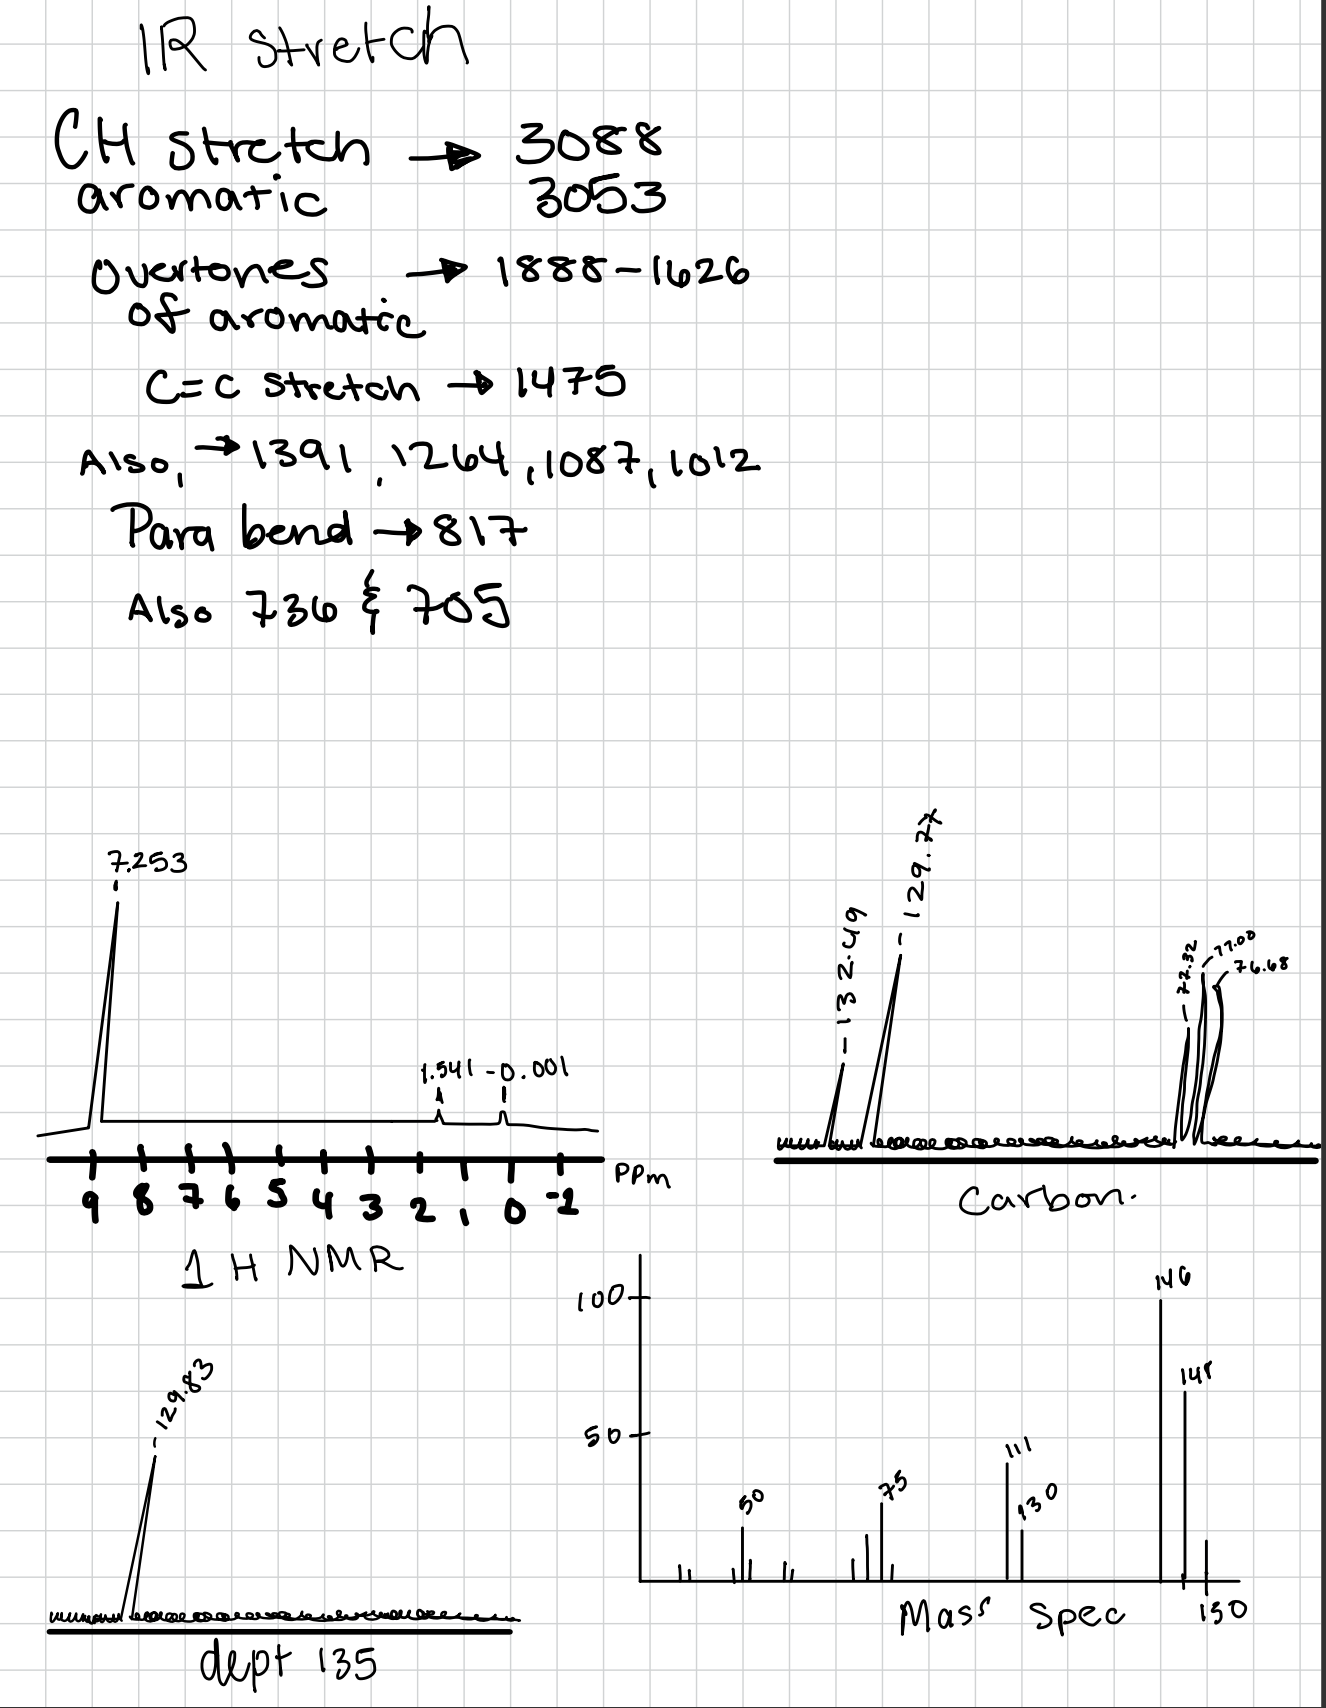 IR stretch
CH stretch → 3088
aromatic 3053
Overtones → 1888-1626
of aromatic
C=C stretch → 1475
Also, → 1391, 1264, 1087, 1012
Para bend → 817
Also 736 & 705
7.253
1.541 -0.001
9 8 7 6 5 4 3 2 1 0 -1 PPm
1 H NMR
-132.49
-129.77
-77.32
-77.00
-76.68
Carbon.
-129.83
dept 135
100
50
50
75
111
130
146
148
150
Mass Spec